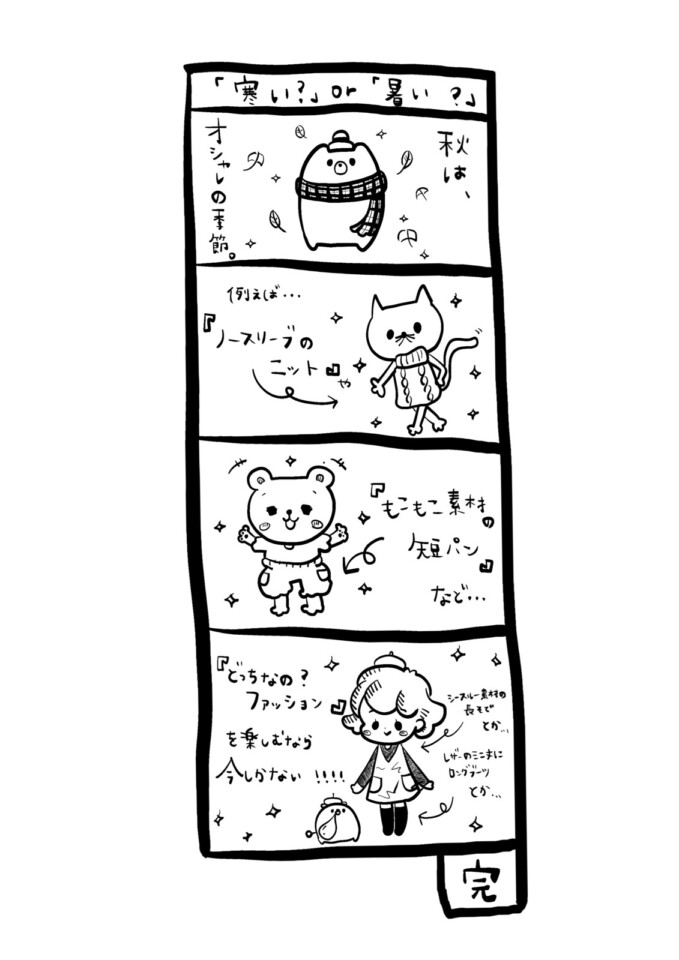 「寒い？」or「暑い？」
秋は、
オシャレの季節。
例えば…
『ノースリーブの
ニット』や
『もこもこ素材の
短パン』
など…
『どっちなの？
ファッション』
を楽しむなら
今しかない!!!!
シースルー素材の
長そで
とか…
レザーのミニ丈に
ロングブーツ
とか…
完